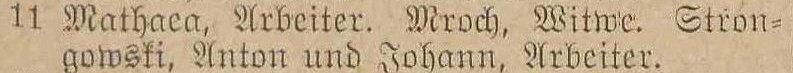 11 Mathaea, Arbeiter. Mroch, Witwe. Stron-
gowski, Anton und Johann, Arbeiter.